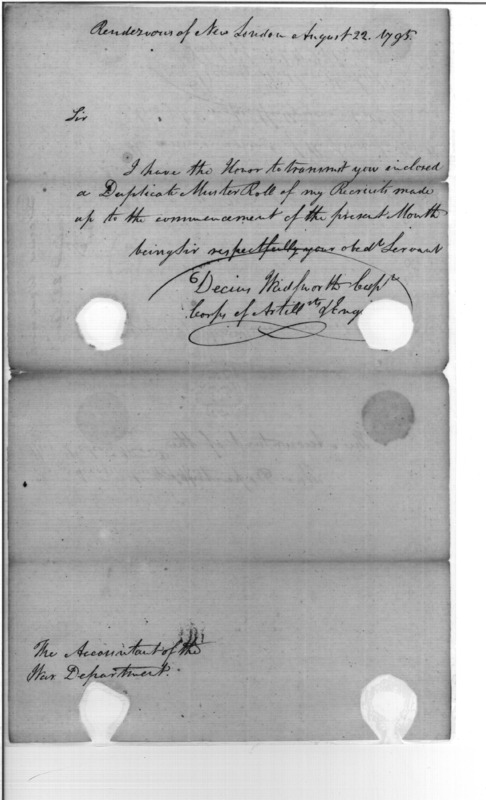 Rendezvous of New London August 22. 1795.
Sir
I have the Honor to transmit you enclosed
a Duplicate Muster Roll of my Recruits made
up to the commencement of the present Month
being Sir respectfully your obedt. Servant
Decius Wadsworth Capt.
Corps of Artillts. & Eng
The Accountant of the
War Department.